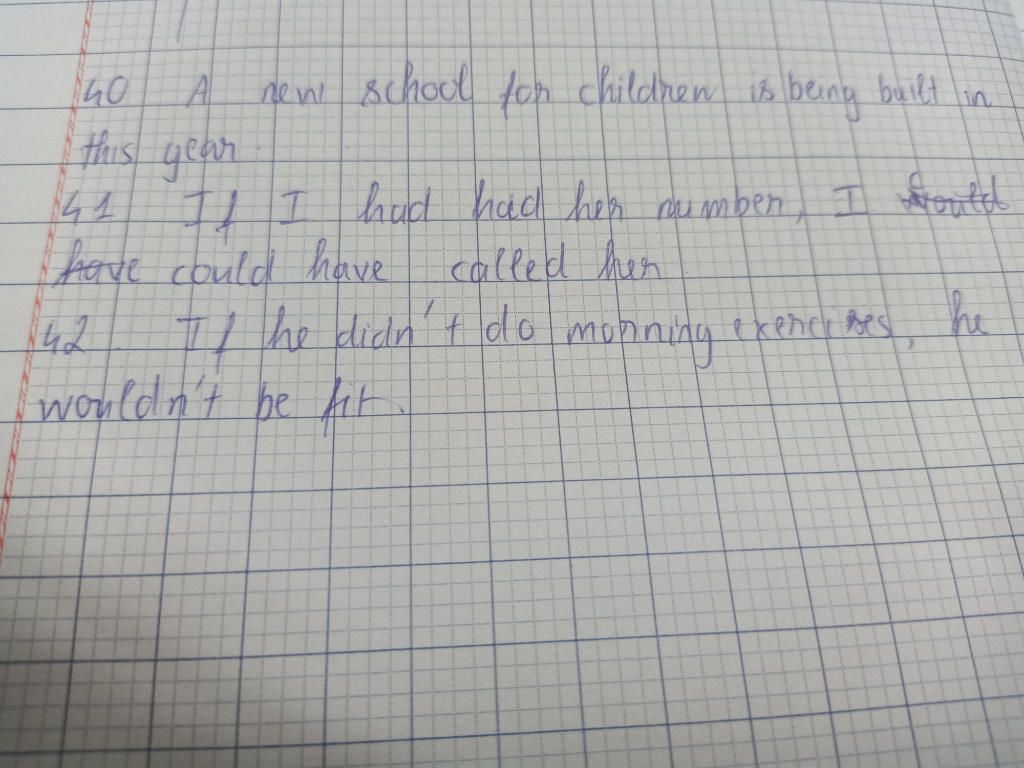 40 A new school for children is being built in
this year.
41 If I had had her number, I could
have could have called her
42. If he didn't do morning exercises, he
wouldn't be fit.